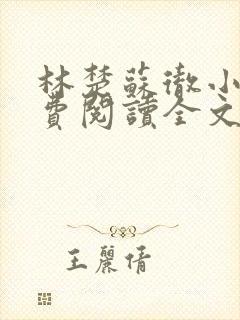 林楚蘇徹小
費閱讀全文
王麗倩